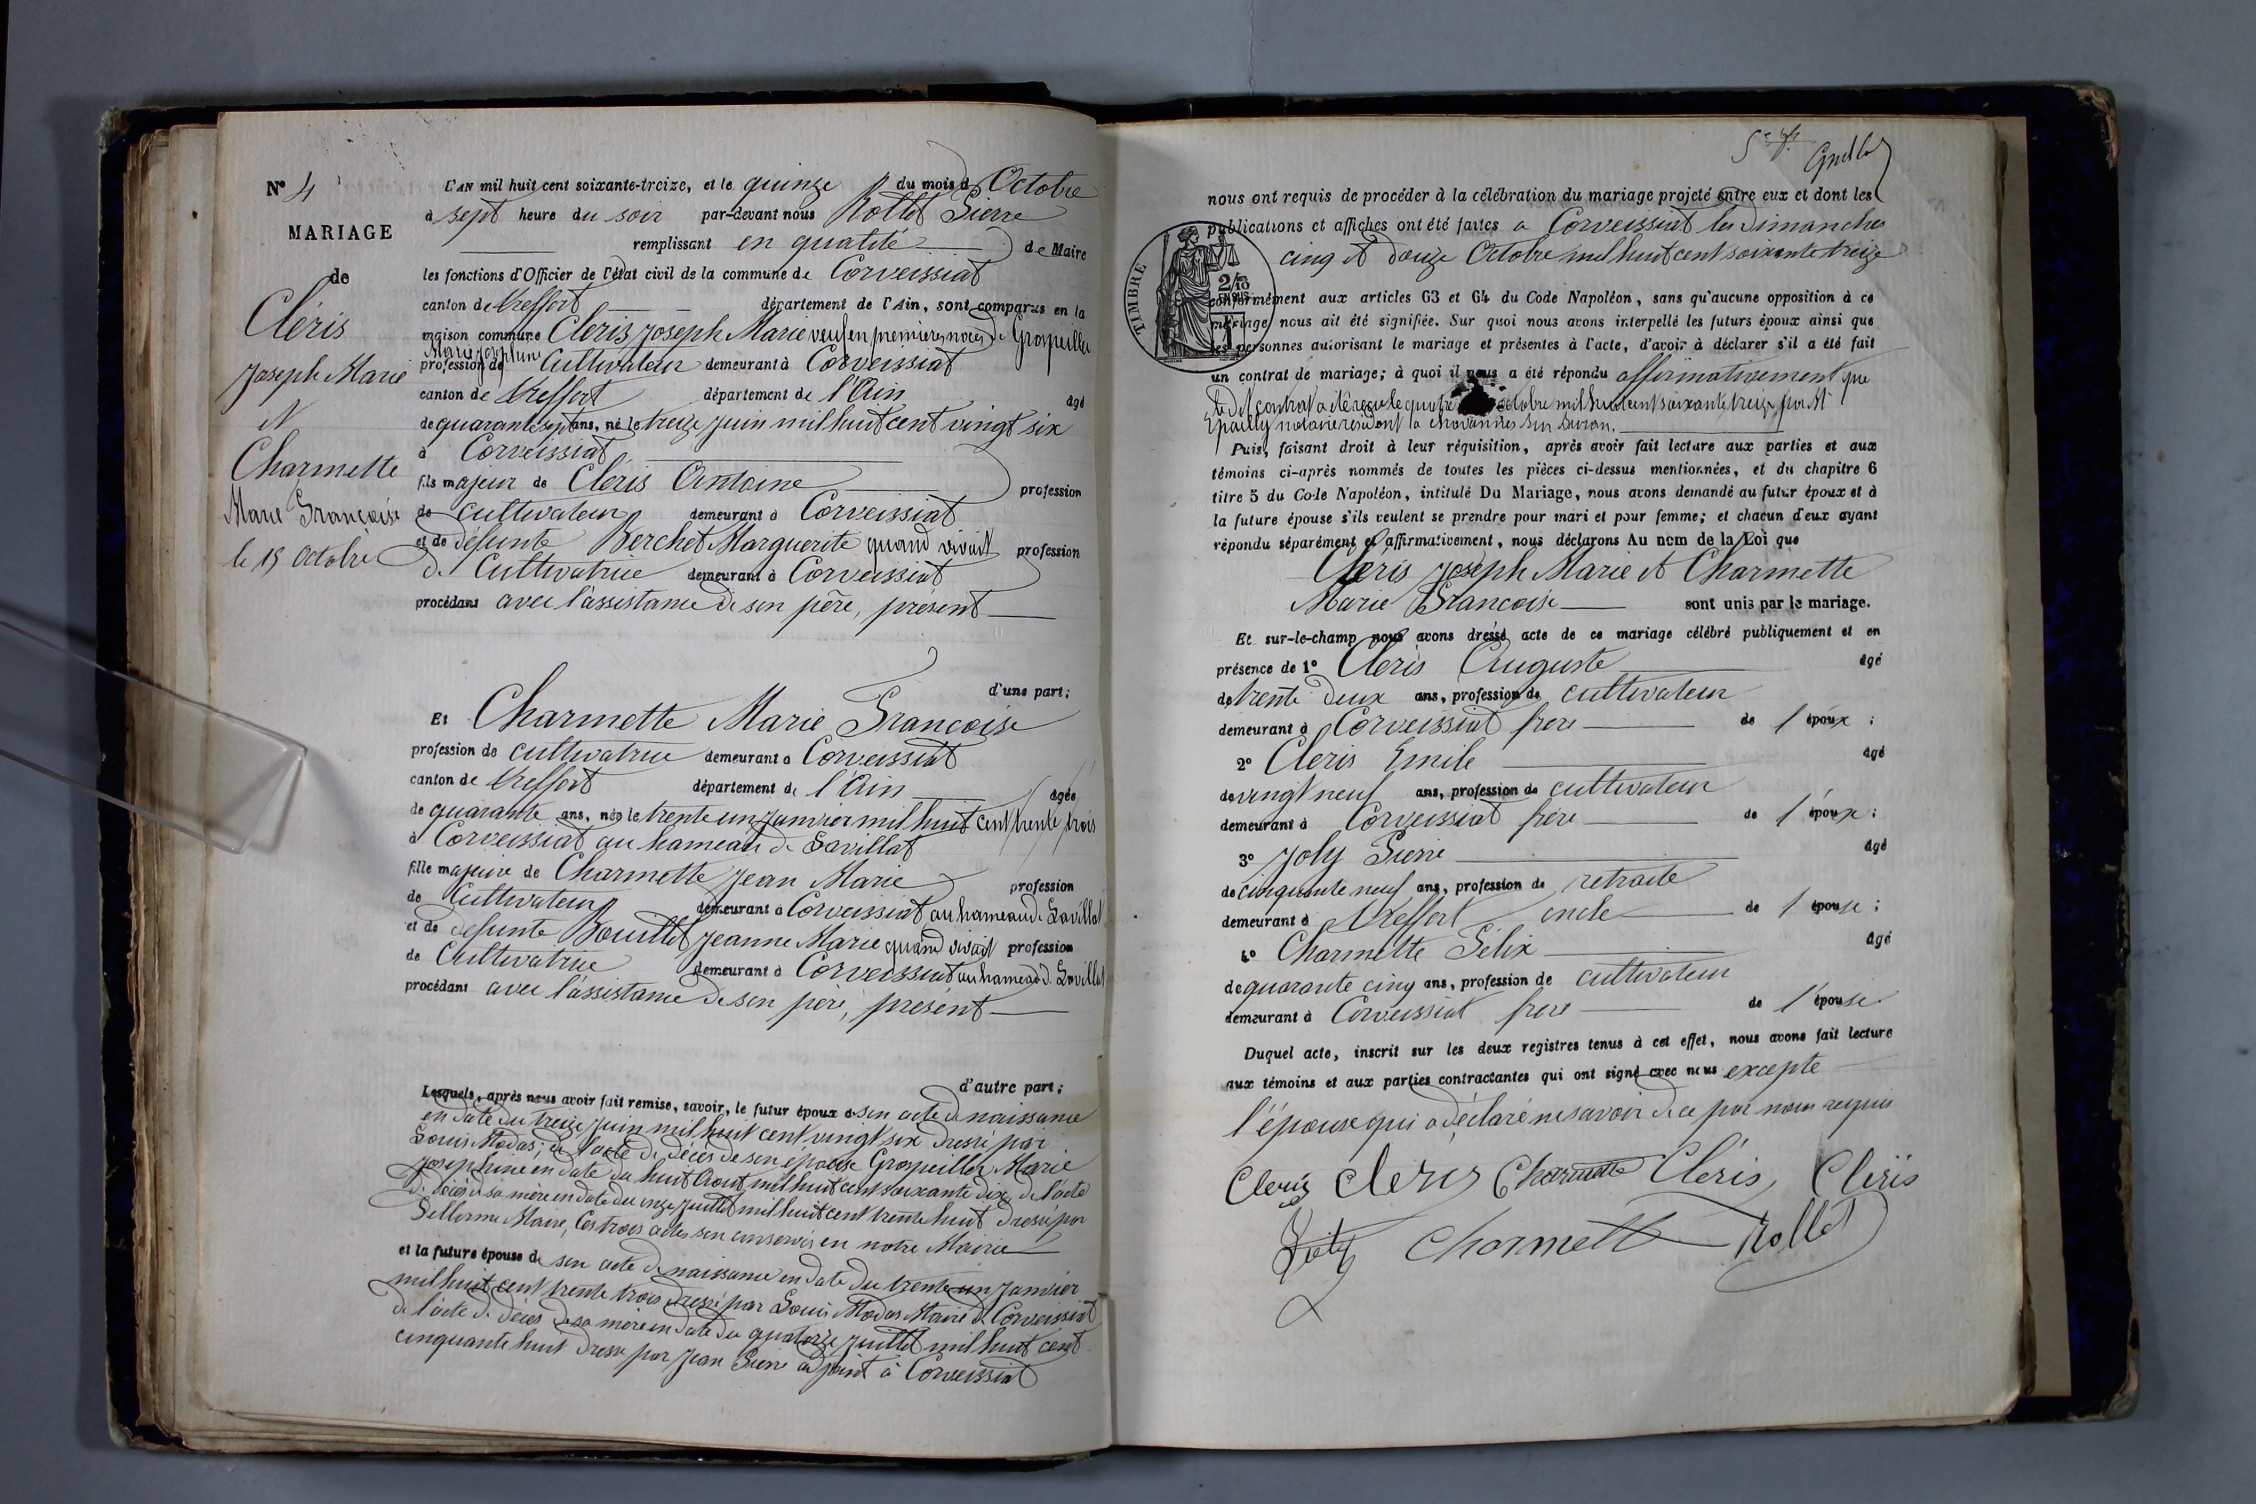 N° 4
MARIAGE
de
Cléris
Joseph Marie
et
Charmette
Marie Françoise
le 15 Octobre
L'AN mil huit cent soixante-treize, et le quinze du mois d'Octobre
à sept heure du soir par-devant nous Rollet Pierre
remplissant en qualité de Maire
les fonctions d'Officier de l'état civil de la commune de Corveissiat
canton de Treffort département de l'Ain, sont comparus en la
maison commune Cléris Joseph Marie veuf en premieres noces de Grospeillet
Marie Josephine
profession de Cultivateur demeurant à Corveissiat
canton de Treffort département de l'Ain âgé
de quarante sept ans, né le treize juin mil huit cent vingt six
à Corveissiat
fils majeur de Cléris Antoine profession
de cultivateur demeurant à Corveissiat
et de défunte Berchet Marguerite quand vivait profession
de Cultivatrice demeurant à Corveissiat
procédant avec l'assistance de son père, présent
d'une part;
Et Charmette Marie Françoise
profession de cultivatrice demeurant à Corveissiat
canton de Treffort département de l'Ain âgée
de quarante ans, née le trente un janvier mil huit cent trente trois
à Corveissiat au hameau de Lavillat
fille majeure de Charmette Jean Marie profession
de Cultivateur demeurant à Corveissiat au hameau de Lavillat
et de défunte Bouillet Jeanne Marie quand vivait profession
de Cultivatrice demeurant à Corveissiat au hameau de Lavillat
procédant avec l'assistance de son père, présent
d'autre part;
Lesquels, après nous avoir fait remise, savoir, le futur époux de son acte de naissance
en date du treize juin mil huit cent vingt six dressé par
Louis Modas; de l'acte de décès de son épouse Grospeillet Marie
Josephine en date du huit Aout mil huit cent soixante dix, de l'acte
de décès de sa mère en date du onze juillet mil huit cent trente huit dressé par
Maire, Ces trois actes son conservés en notre Mairie
et la future épouse de son acte de naissance en date du trente un janvier
mil huit cent trente trois dressé par Louis Modas Maire de Corveissiat
de l'acte de décès de sa mère en date du quatorze juillet mil huit cent
cinquante huit dressé par Jean Pierre adjoint à Corveissiat
nous ont requis de procéder à la célébration du mariage projeté entre eux et dont les
publications et affiches ont été faites à Corveissiat les Dimanches
cinq et douze Octobre mil huit cent soixante treize
TIMBRE
2/10
EN SUS
conformément aux articles 63 et 64 du Code Napoléon, sans qu'aucune opposition à ce
mariage nous ait été signifiée. Sur quoi nous avons interpellé les futurs époux ainsi que
les personnes autorisant le mariage et présentes à l'acte, d'avoir à déclarer s'il a été fait
un contrat de mariage; à quoi il nous a été répondu affirmativement que
le dit contrat a été reçu le quatre octobre mil huit cent soixante treize, par Mr
Epailly notaire résidant à Chavannes sur Suran.
Puis, faisant droit à leur réquisition, après avoir fait lecture aux parties et aux
témoins ci-après nommés de toutes les pièces ci-dessus mentionnées, et du chapitre 6
titre 5 du Code Napoléon, intitulé Du Mariage, nous avons demandé au futur époux et à
la future épouse s'ils veulent se prendre pour mari et pour femme; et chacun d'eux ayant
répondu séparément et affirmativement, nous déclarons Au nom de la Loi que
Cléris Joseph Marie et Charmette
Marie Françoise sont unis par le mariage.
Et sur-le-champ nous avons dressé acte de ce mariage célébré publiquement et en
présence de 1° Cléris Auguste âgé
de trente deux ans, profession de cultivateur
demeurant à Corveissiat frère de l'époux;
2° Cléris Emile âgé
de vingt neuf ans, profession de cultivateur
demeurant à Corveissiat frère de l'époux;
3° Joly Pierre âgé
de cinquante neuf ans, profession de retraité
demeurant à Treffort oncle de l'épouse;
4° Charmette Félix âgé
de quarante cinq ans, profession de cultivateur
demeurant à Corveissiat frère de l'épouse
Duquel acte, inscrit sur les deux registres tenus à cet effet, nous avons fait lecture
aux témoins et aux parties contractantes qui ont signé avec nous excepté
l'épouse qui a déclaré ne savoir de ce par nous requis
Cleris Cleris Charmette Cléris Cléris
Charmett Rollet